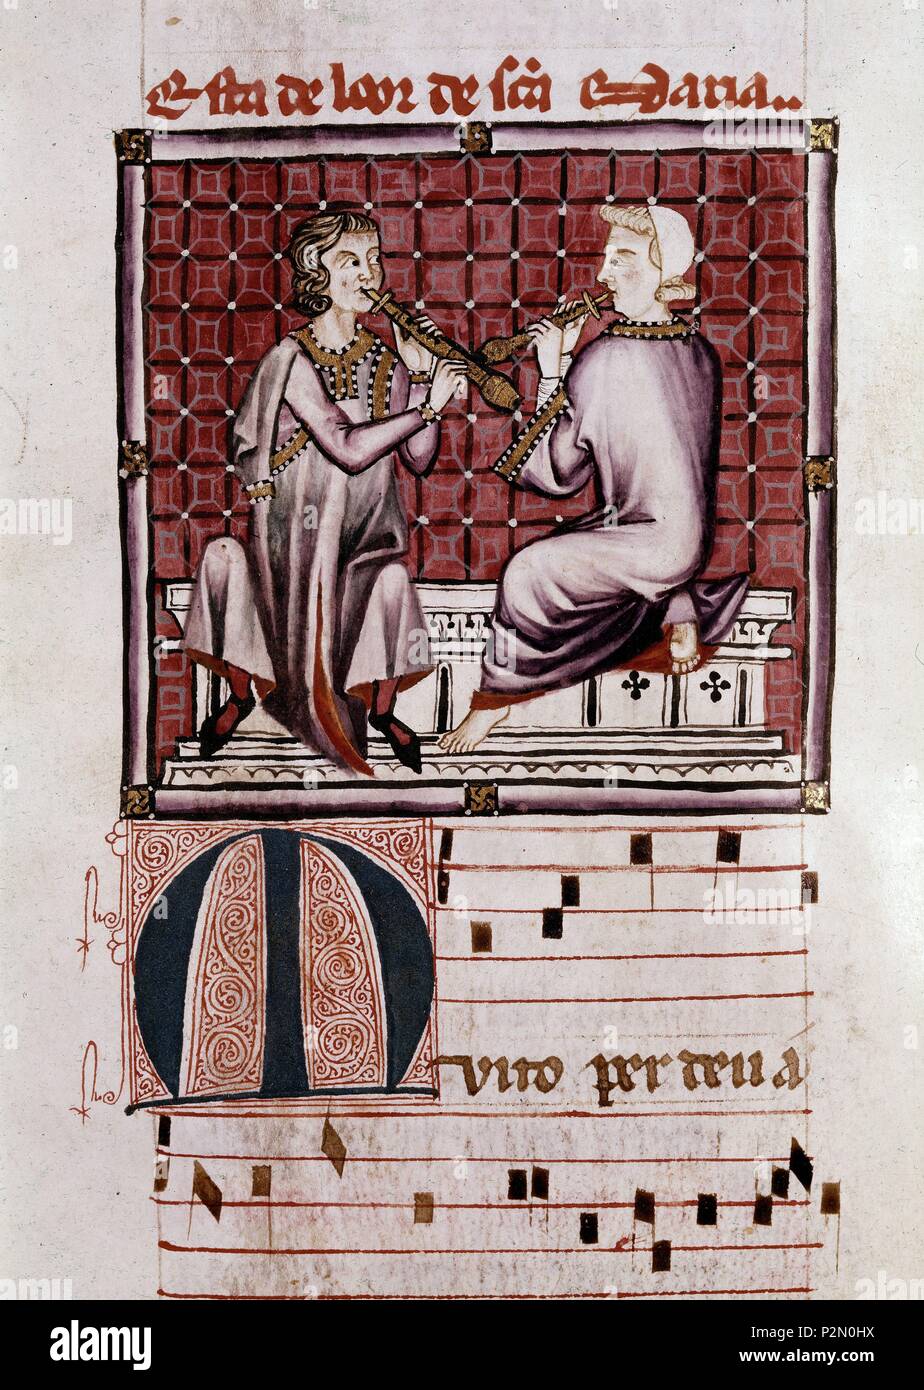 Esta de loor de scā Maria..
Muito per deuia
alamy
alamy
Image ID: 2P2N0HX
www.alamy.com